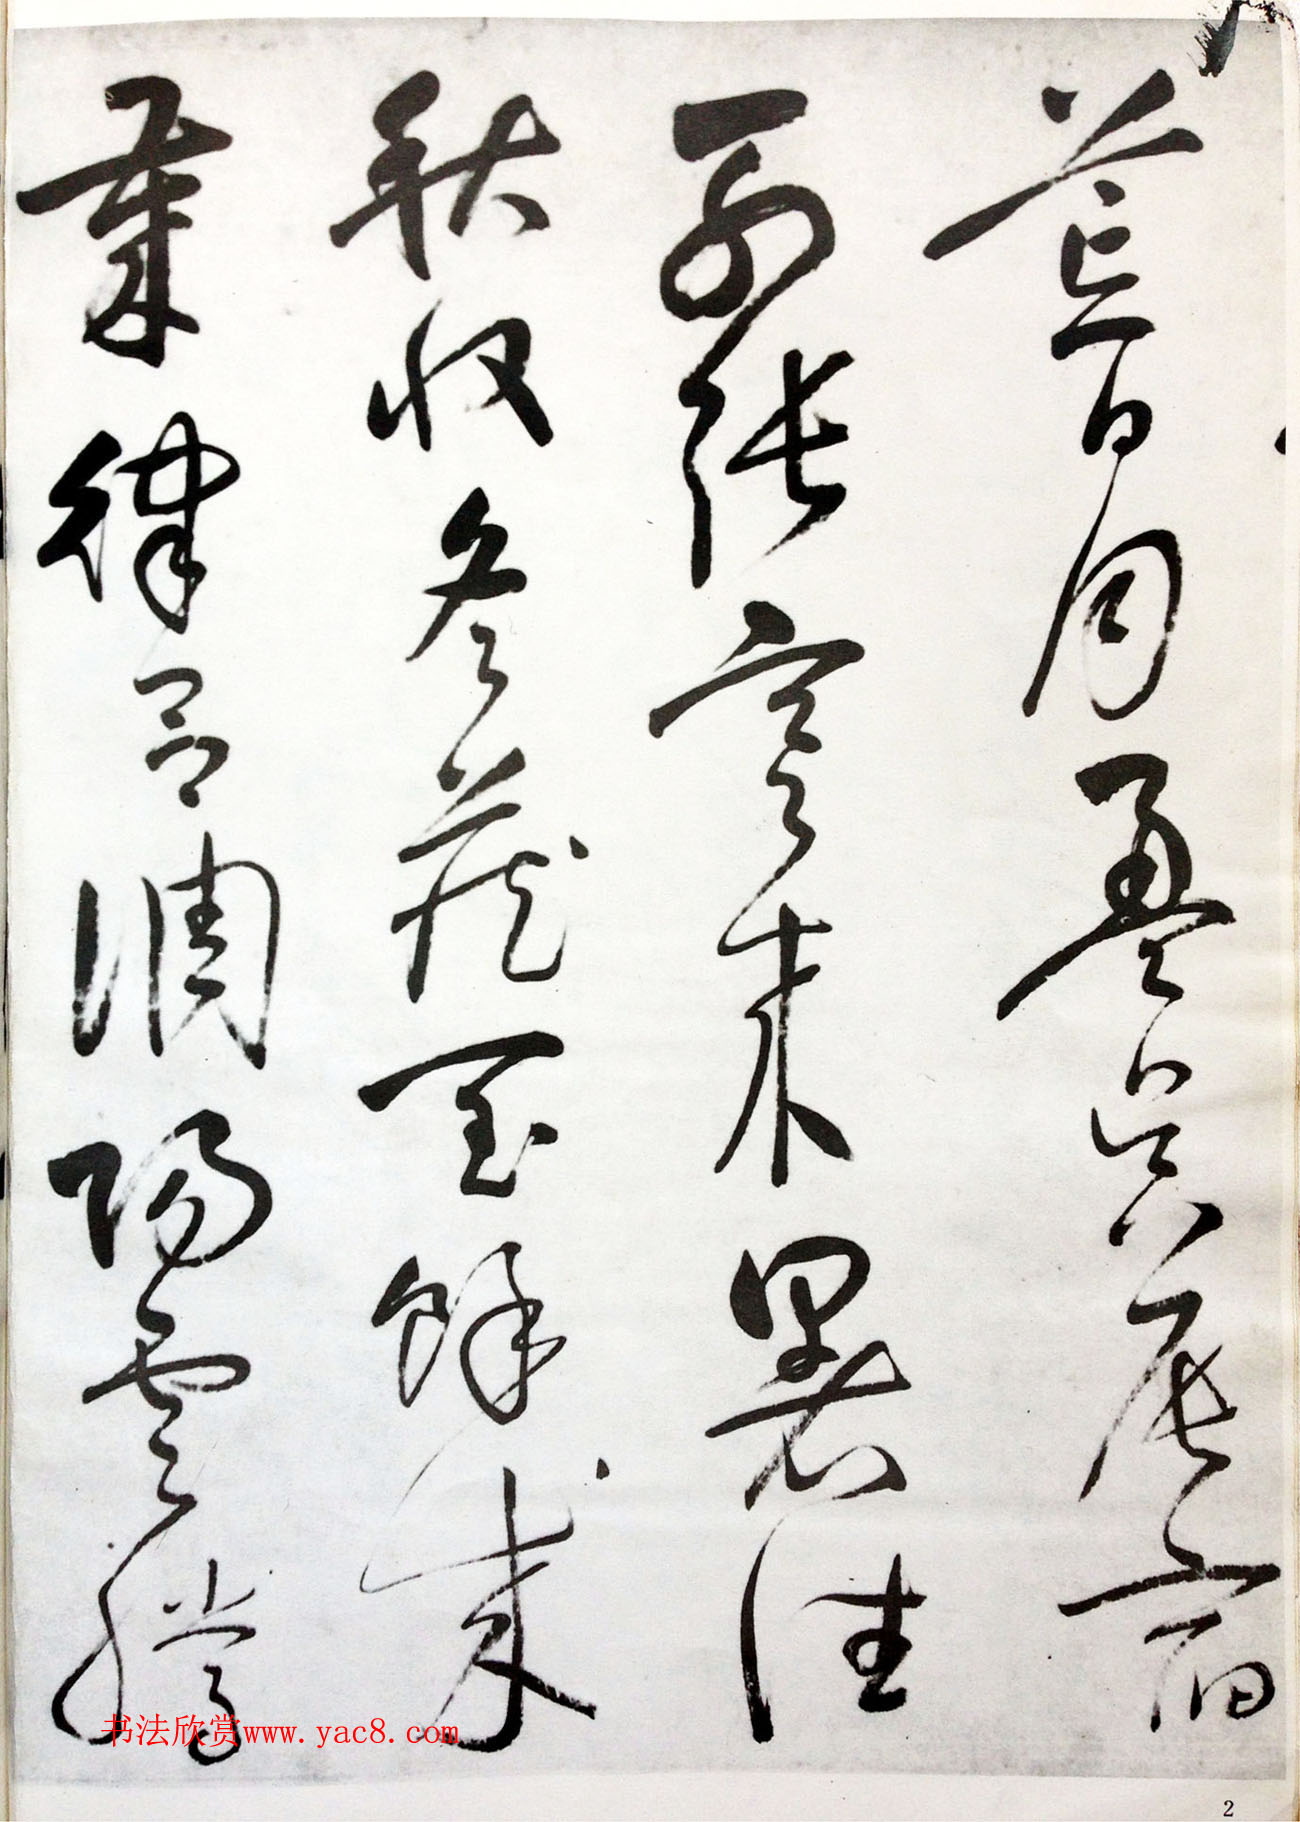 荒日月盈昃辰宿
列張寒来暑往
秋收冬藏閏餘成
歲律呂調陽雲騰
书法欣赏www.yac8.com
2